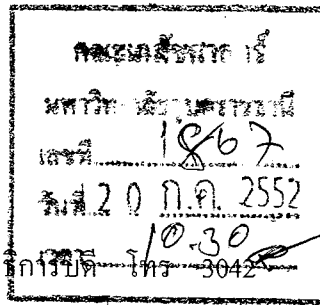 คณะเภสัชศาสตร์
มหาวิทยาลัยอุบลราชธานี
เลขที่ 1867
วันที่ 20 ก.ค. 2552
10.30
โทร 3042